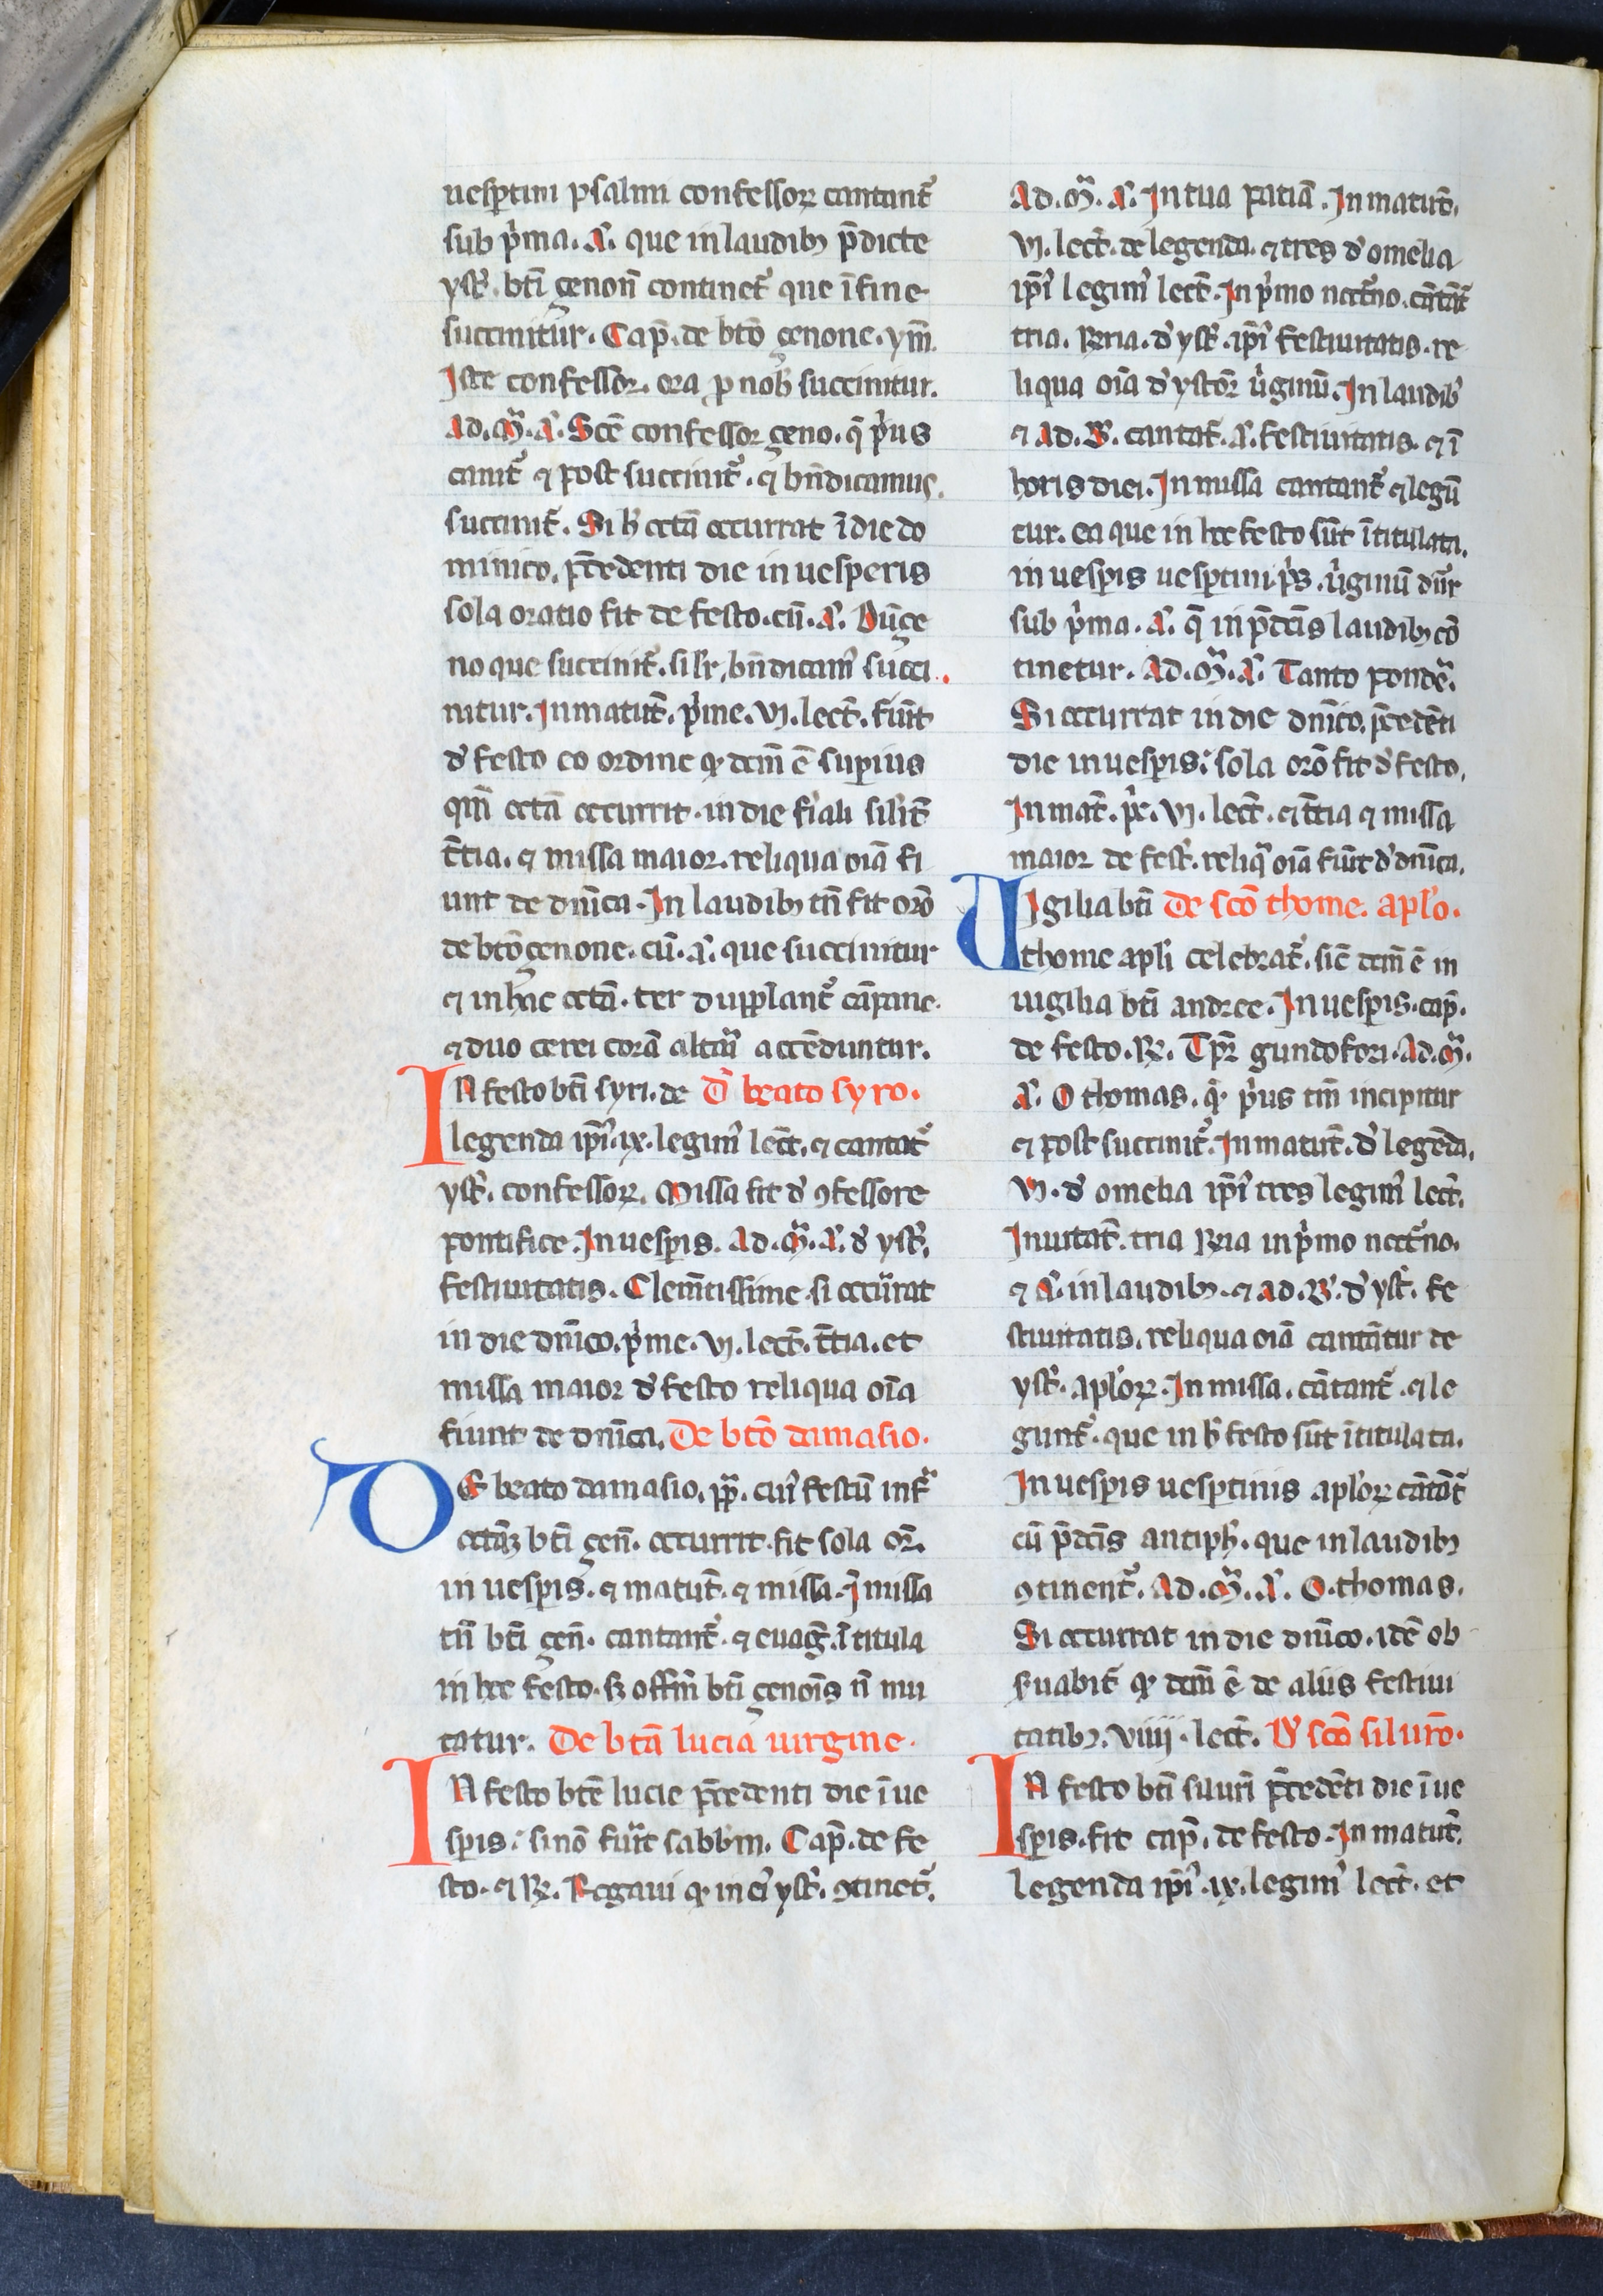 uesptini psalmi confessoꝝ cantant᷑
sub p̾ma. A᷑. que in laudibꝫ p̄dicte
yst᷑. bt̄i çenoñ continet᷑ que ī fine
succinitur. Cap̄. de btō çenone. ym̄.
Iste confessor. ora ꝓ nob̾ succinitur.
Ad. M̄. A᷑. Scē confessor çeno. q̄ p̾us
canit᷑ ⁊ post succinit᷑. ⁊ bn̄dicamus.
succinit᷑. Si h̾ octā occurrat ī die do
minico, p̄cedenti die in uesperis
sola oratio fit de festo. cū. A᷑. Dūçe
no que succinit᷑. silr̄, bn̄dicam᷒ succi.
nitur. In matut̄. p̾me. vj. lect̄. fiūt
d̾ festo eo ordine qͥ dcm̄ ē superius
qm̄ octā occurrit. in die fiali silit̄
t̄tia. ⁊ missa maior. reliqua oīa fi
unt de dn̄ica. In laudibꝫ tn̄ fit orō
de btō çenone. cū. A᷑. que succinitur
⁊ in hac octā. ter dupplant᷑ cāpane.
⁊ duo cerei corā altari accēduntur.
IN festo bt̄i syri. de D̾ beato syro.
legenda ip̄i᷒. ix. legunt᷑ lect̄. ⁊ cantat᷑
yst᷑. confessoꝝ. Missa fit d̾ ꝯfessore
pontifice. In uesp̄is. Ad. M̄. A᷑. d̾ yst᷑.
festiuitatis. Clem̄tissime. si occurrat
in die dn̄ico. p̾me. vj. lect̄. t̄tia. et
missa maior d̾ festo reliqua oīa
fiunt de dn̄ica. De btō damasio.
DE beato damasio. pp̄. cui᷒ festū infᷓ
octāꝫ bt̄i çen̄. occurrit. fit sola or̄.
in uesp̄is. ⁊ matut̄. ⁊ missa. I missa
tn̄ bt̄i çen̄. cantant᷑. ⁊ euag̃. ītitula
in hoc festo. sꝫ offm̄ bt̄i çenoīs n̄ mu
tatur. De btā lucia uirgine.
IN festo btē lucie p̄cedenti die ī ue
sp̄is. si nō fuīt sabb̄m. Cap̄. de fe
sto. ⁊ ℞. Rogaui qͥ in ei᷒ yst᷑. ꝯtinet᷑.
Ad. M̄. A᷑. In tua patiā. In matut̄.
vj. lect̄. de legenda. ⁊ tres d̾ omelia
ip̄i᷒ legunt᷑ lect̄. In p̾mo noct̾no. cātāt᷑
tria. ℞ria. d̾ yst᷑. ip̄i᷒ festiuitatis. re
liqua oīa d̾ ystor̄ u̾ginū. In laudib᷒
⁊ Ad. B᷑. cantat᷑. A᷑. festiuitatis. ⁊ ī
horis diei. In missa cantant᷑ ⁊ legū
tur. ea que in hoc festo sūt ītitulata.
in uesp̄is uesptini p̄s. u̾ginū dn̄r
sub p̾ma. A᷑. q̄ in p̄dcīs laudibꝫ cō
tinetur. Ad. M̄. A᷑. Tanto pondē.
Si occurrat in die dn̄ico. p̄cedēti
die in uesp̄is. sola orō fit d̾ festo.
In mat̄. p̾e. vj. lect̄. ⁊ t̄tia ⁊ missa
maior de fest᷑. reliqͣ oīa fiūt d̾ dn̄ica.
UIgilia bt̄i De scō thome. aplo.
thome apli celebrat᷑. sic̄ dcm̄ ē in
uigilia bt̄i andree. In uesp̄is. cap̄.
de festo. ℞. Tpr̄ gundofori. Ad. M̄.
A᷑. O thomas. qͥ p̾us tm̄ incipitur
⁊ post succinit᷑. In matut̄. d̾ legēda.
vj. d̾ omelia ip̄i᷒ tres legunt᷑ lect̄.
Inuitat̄. tria ℞ia in p̾mo noct̾no.
⁊ A᷑. in laudibꝫ. ⁊ ad. B᷑. d̾ yst᷑. fe
stiuitatis. reliqua oīa cantātur de
yst᷑. aploꝝ. In missa. cātant᷑. ⁊ le
gunt᷑. que in h̾ festo sūt ītitulata.
In uesp̄is uesptinis aploꝝ cātāt᷑
cū p̄dcīs antiph̄. que in laudibꝫ
ꝯtinent᷑. Ad. M̄. A᷑. O. thomas.
Si occurrat in die dn̄ico. idē ob
s̾uabit᷑ qͥ dcm̄ ē de aliis festiui
tatibꝫ. viiij. lect̄. D̾ scō siluro.
IN festo bt̄i siluri p̄cedēti die ī ue
sp̄is. fit cap̄. de festo. In matut̄.
legenda ip̄i᷒. ix. legunt᷑ lect̄. et